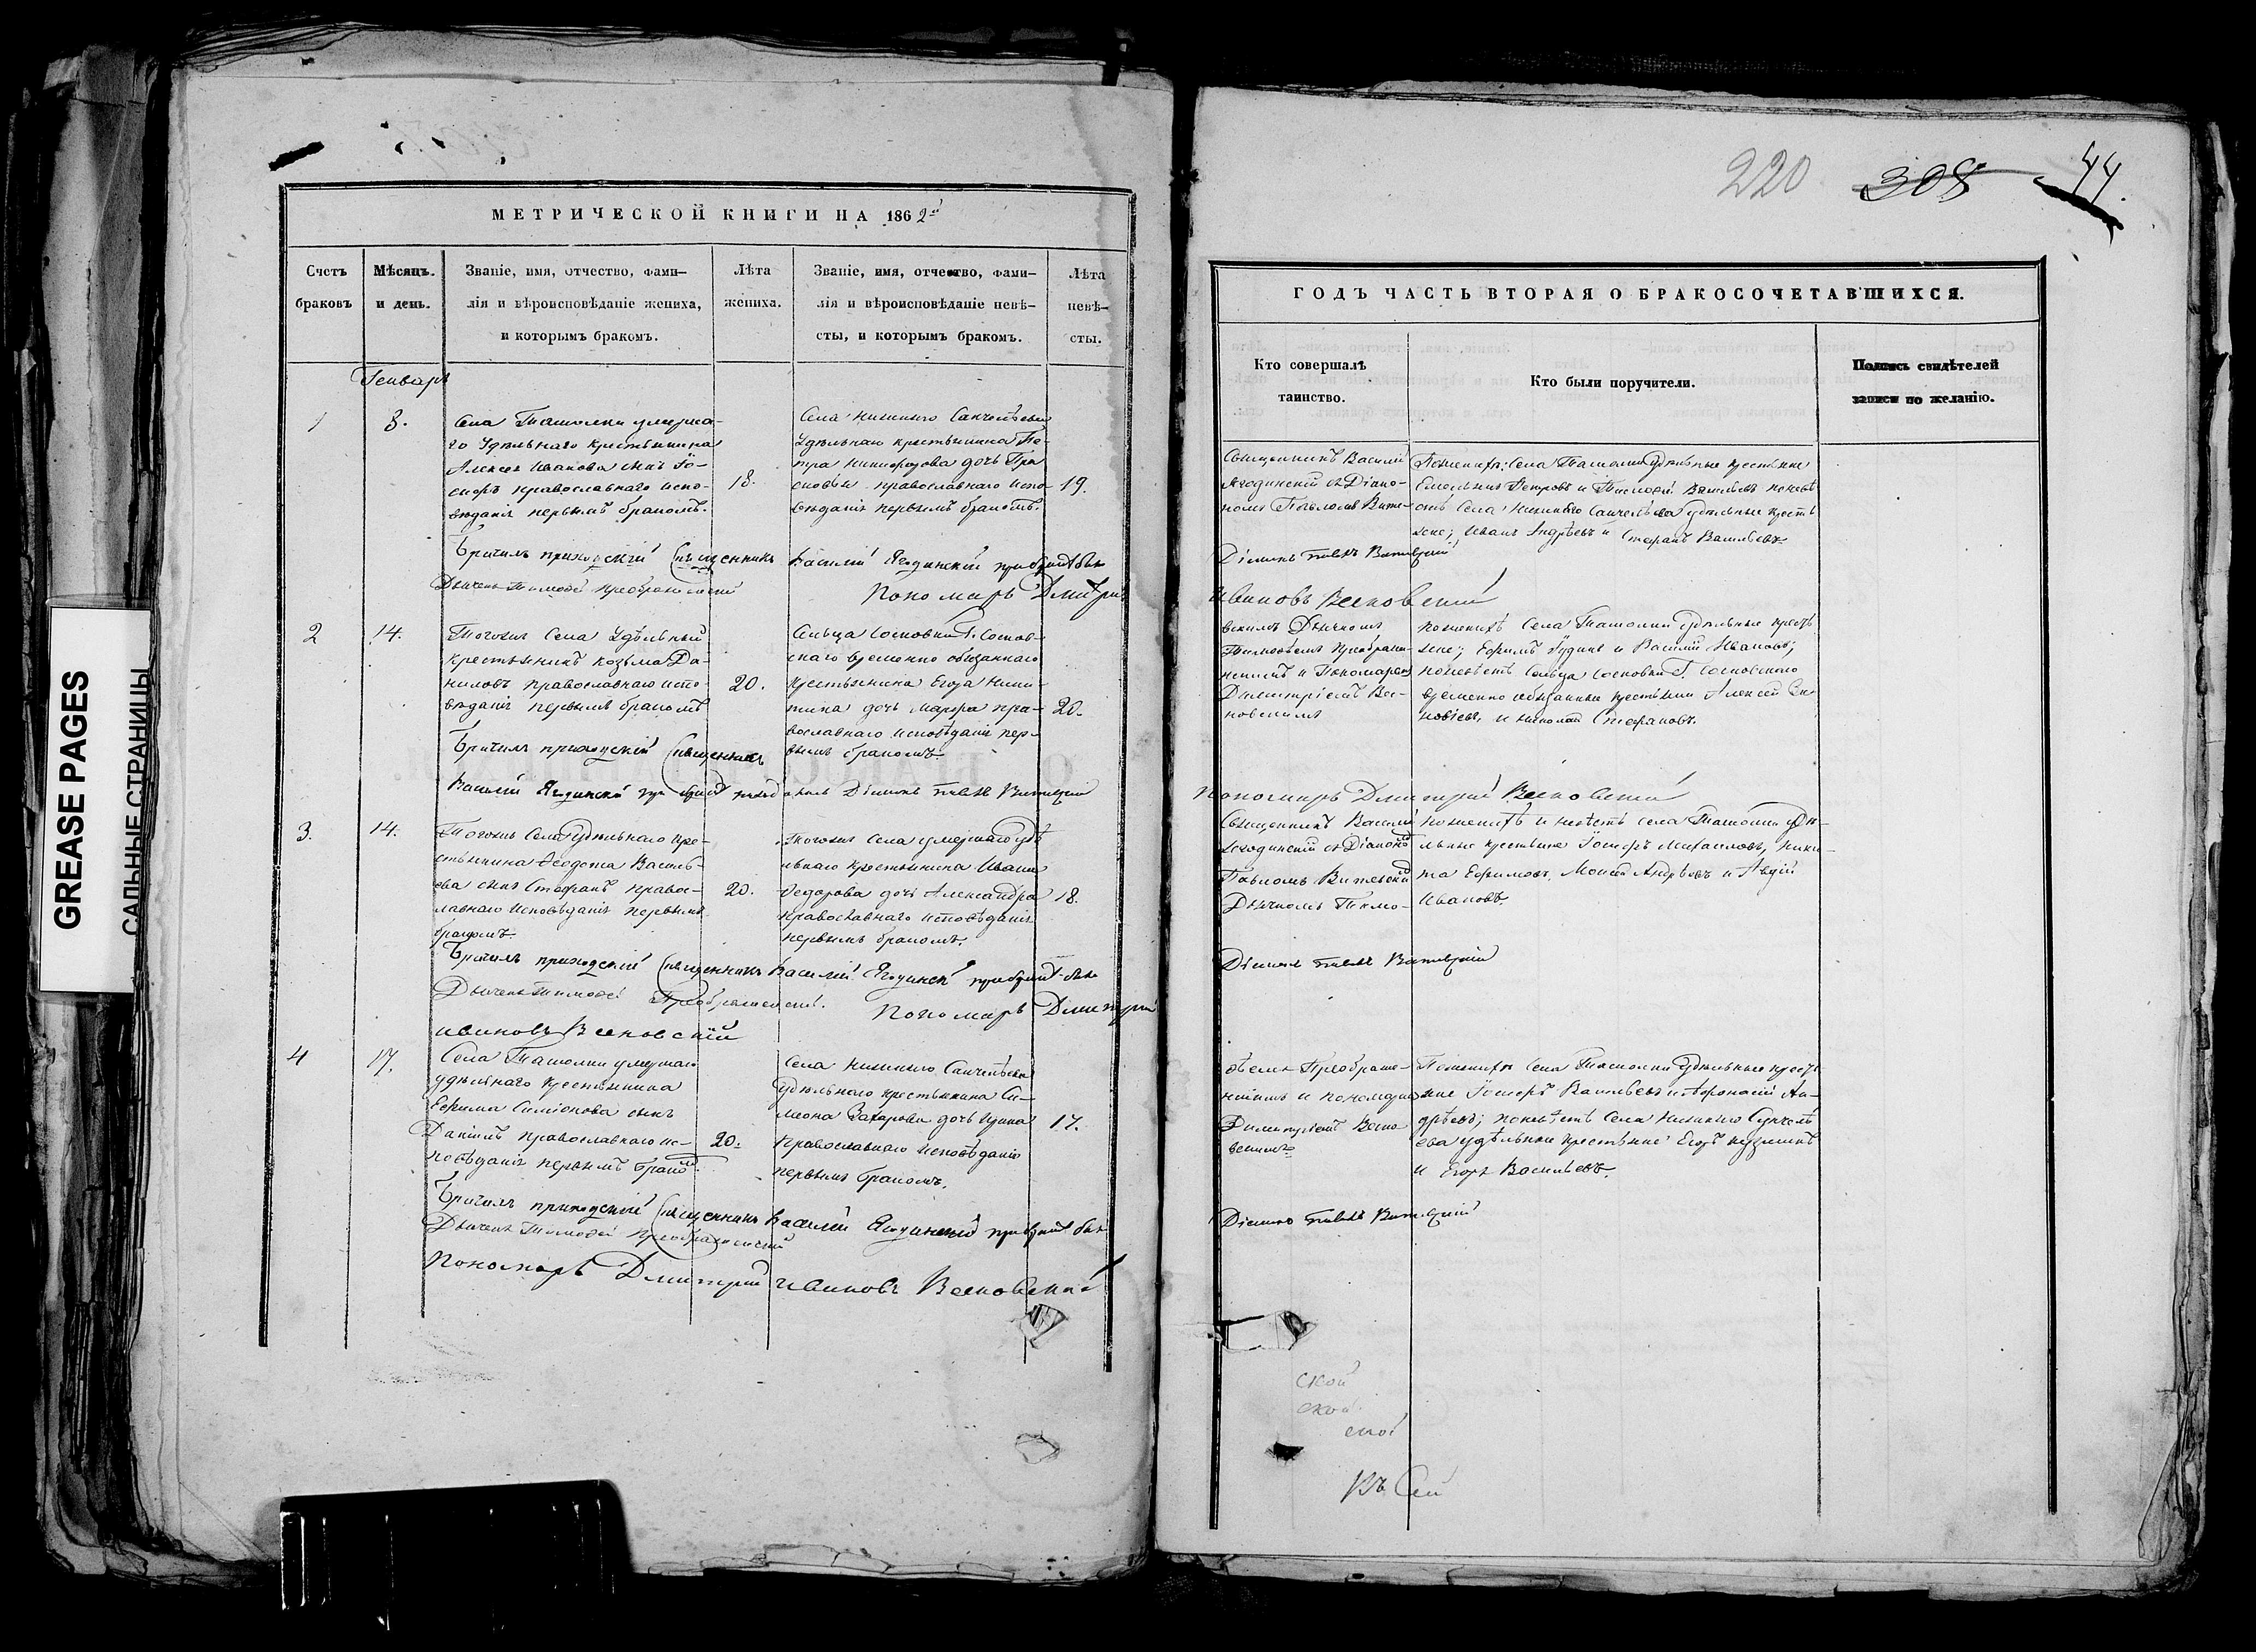 GREASE PAGES
САЛЬНЫЕ СТРАНИЦЫ
МЕТРИЧЕСКОЙ КНИГИ НА 1862й
Счетъ браковъ
Мѣсяцъ и день.
Званіе, имя, отчество, фами-
лія и вѣроисповѣданіе жениха,
и которымъ бракомъ.
Лѣта
жениха.
Званіе, имя, отчество, фами-
лія и вѣроисповѣданіе невѣ-
сты, и которымъ бракомъ.
Лѣта
невѣ-
сты.
Генварь
1
3.
Села Ташолки умерша-
го Удѣльнаго крестьянина
Алексея Иванова сынъ Іо-
сифъ православнаго испо-
вѣданія первымъ бракомъ.
18.
Села Нижняго Санчелѣева
Удѣльнаго крестьянина Пе-
тра Никифорова дочь Пра
сковья православнаго испо
вѣданія первымъ бракомъ.
19.
Бричилъ приходскій священникъ Василій Ягодинскій
Дьячекъ Тимофей Преображенскій
Пономарь Дмитрій
2
14.
Тогожъ Села Удѣльный
крестьянинъ Козьма Да-
ниловъ православнаго испо-
вѣданія первымъ бракомъ
20.
Сельца Сосновки Г. Соснов-
скаго временно обязаннаго
крестьянина Егора Ники-
тина дочь Марфа пра-
вославнаго исповѣданія пер-
вымъ бракомъ.
20.
приходскій священникъ
Василій Ягодинскій
3.
14.
Тогожъ Села Удѣльнаго кре-
стьянина Ѳеодота Василь-
ева сынъ Стефанъ правос-
лавнаго исповѣданія первымъ
бракомъ.
20.
Тогожъ Села умершаго удѣ
льнаго крестьянина Ивана
Ѳедорова дочь Александра
православнаго исповѣданія
первымъ бракомъ.
18.
приходскій священникъ Василій Ягодинскій
Дьячекъ Тимофей Преображенскій.
Пономарь Дмитрій
Ивановъ Весновскій
4
17.
Села Ташолки умершаго
удѣльнаго крестьянина
Ефима Симіонова сынъ
Даніилъ православнаго ис-
повѣданія первымъ бракомъ.
20.
Села Нижняго Санчелѣева
удѣльнаго крестьянина Си-
меона Захарова дочь Ирина
православнаго исповѣданія
первымъ бракомъ.
17.
приходскій священникъ Василій Ягодинскій
Дьячекъ Тимофей Преображенскій
Пономарь Дмитрій Ивановъ Весновскій
220 308 44.
ГОДЪ ЧАСТЬ ВТОРАЯ О БРАКОСОЧЕТАВШИХСЯ.
Кто совершалъ
таинство.
Кто были поручители.
Подпись свидѣтелей
записи по желанію.
Священникъ Василій
Ягодинскій съ Діако-
номъ Павломъ
По женихѣ: Села Ташолки Удѣльные крестьяне
Емельянъ Петровъ и Тимофей Васильевъ по невѣ
стѣ Села Нижняго Санчелѣева удѣльные кресть
яне; Иванъ Андрѣевъ и Стефанъ Васильевъ.
Діаконъ Павелъ
Ивановъ Весновскій
Дьячкомъ
Тимофѣемъ Преображе-
нскимъ и Пономаремъ
Димитріемъ Вес-
новскимъ
По женихѣ Села Ташолки удѣльные кресть
яне; Ефимъ и Василій Ивановъ;
по невѣстѣ Сельца Сосновки Г. Сосновскаго
временно обязанные крестьяне Алексей
и Николай Стефановъ.
Пономарь Дмитрій Весновскій
Священникъ Василій
Ягодинскій съ Діакономъ
Павломъ
Дьячкомъ Тимо-
По женихѣ и невѣстѣ села Ташолки удѣ-
льные крестьяне Іосифъ Михаиловъ, Ники-
та Ефимовъ, Моисей Андрѣевъ и Авдій
Ивановъ.
Діаконъ Павелъ
ѳѣемъ Преображе-
нскимъ и пономаремъ
Димитріемъ Весно
вскимъ
По женихѣ Села Ташолки Удѣльные кресть
яне Іосифъ Васильевъ и Афонасій Ан-
дрѣевъ; по невѣстѣ Села Нижняго Санчелѣ
ева удѣльные крестьяне Егоръ Кузминъ
и Егоръ Васильевъ.
Діаконъ Павелъ
ской
ской
ской